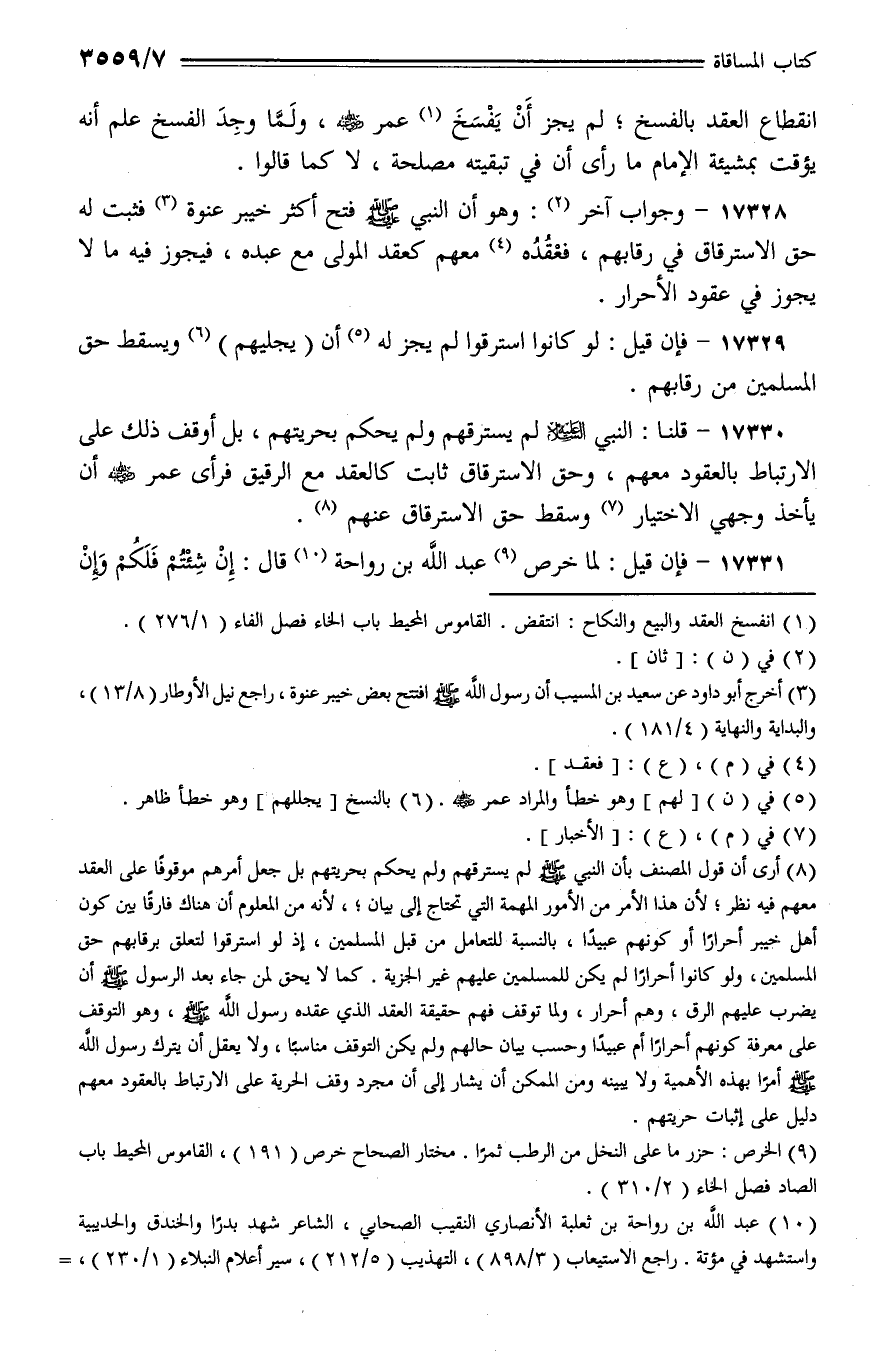 كتاب المساقاة ٣٥٥٩/٧
انقطاع العقد بالفسخ ؛ لم يجز أَنْ يَفْسَخَ (١) عمر ﵁ ، ولَـمَّا وجِدَ الفسخ علم أنه
يؤقت بمشيئة الإمام ما رأى أن في تبقيته مصلحة ، لا كما قالوا .
١٧٣٢٨ - وجواب آخر (٢) : وهو أن النبي ﷺ فتح أكثر خيبر عنوة (٣) فثبت له
حق الاسترقاق في رقابهم ، فعْقُدُه (٤) معهم كعقد المولى مع عبده ، فيجوز فيه ما لا
يجوز في عقود الأحرار .
١٧٣٢٩ - فإن قيل : لو كانوا استرقوا لم يجز له (٥) أن ( يجليهم ) (٦) ويسقط حق
المسلمين من رقابهم .
١٧٣٣٠ - قلنـا : النبي ﵇ لم يسترقهم ولم يحكم بحريتهم ، بل أوقف ذلك على
الارتباط بالعقود معهم ، وحق الاسترقاق ثابت كالعقد مع الرقيق فرأى عمر ﵁ أن
يأخذ وجهي الاختيار (٧) وسقط حق الاسترقاق عنهم (٨) .
١٧٣٣١ - فإن قيل : لما خرص (٩) عبد اللَّه بن رواحة (١٠) قال : إِنْ شِئْتُمْ فَلَكُمْ وَإِنْ
(١) انفسخ العقد والبيع والنكاح : انتقض . القاموس المحيط باب الخاء فصل الفاء ( ٢٧٦/١ ) .
(٢) في ( ن ) : [ ثان ] .
(٣) أخرج أبو داود عن سعيد بن المسيب أن رسول اللَّه ﷺ افتتح بعض خيبر عنوة ، راجع نيل الأوطار ( ١٣/٨ ) ،
والبداية والنهاية ( ١٨١/٤ ) .
(٤) في ( م ) ، ( ع ) : [ فعقـد ] .
(٥) في ( ن ) [ لهم ] وهو خطأ والمراد عمر ﵁ . (٦) بالنسخ [ يجللهم ] وهو خطأ ظاهر .
(٧) في ( م ) ، ( ع ) : [ الأخبار ] .
(٨) أرى أن قول المصنف بأن النبي ﷺ لم يسترقهم ولم يحكم بحريتهم بل جعل أمرهم موقوفًا على العقد
معهم فيه نظر ؛ لأن هذا الأمر من الأمور المهمة التي تحتاج إلى بيان ؛ ، لأنه من المعلوم أن هناك فارقًا بين كون
أهل خيبر أحرارًا أو كونهم عبيدًا ، بالنسبة للتعامل من قبل المسلمين ، إذ لو استرقوا لتعلق برقابهم حق
المسلمين ، ولو كانوا أحرارًا لم يكن للمسلمين عليهم غير الجزية . كما لا يحق لمن جاء بعد الرسول ﷺ أن
يضرب عليهم الرق ، وهم أحرار ، ولما توقف فهم حقيقة العقد الذي عقده رسول اللَّه ﷺ ، وهو التوقف
على معرفة كونهم أحرارًا أم عبيدًا وحسب بيان حالهم ولم يكن التوقف مناسبًا ، ولا يعقل أن يترك رسول اللَّه
ﷺ أمرًا بهذه الأهمية ولا يبينه ومن الممكن أن يشار إلى أن مجرد وقف الحرية على الارتباط بالعقود معهم
دليل على إثبات حريتهم .
(٩) الخرص : حزر ما على النخل من الرطب ثمرًا . مختار الصحاح خرص ( ١٩١ ) ، القاموس المحيط باب
الصاد فصل الخاء ( ٣١٠/٢ ) .
(١٠) عبد اللَّه بن رواحة بن ثعلبة الأنصاري النقيب الصحابي ، الشاعر شهد بدرًا والخندق والحديبية
واستشهد في مؤتة . راجع الاستيعاب ( ٨٩٨/٣ ) ، التهذيب ( ٢١٢/٥ ) ، سير أعلام النبلاء ( ٢٣٠/١ ) ، =